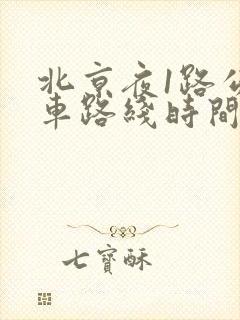 北京夜1路公
車路綫時間
七寶酥